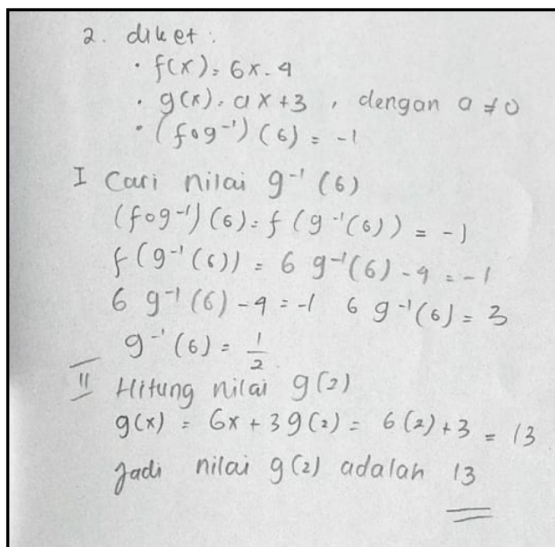 2. diket :
• f(x) = 6x - 4
• g(x) = ax + 3 , dengan a ≠ 0
• (fog⁻¹) (6) = -1
I Cari nilai g⁻¹ (6)
(fog⁻¹) (6) = f (g⁻¹(6)) = -1
f (g⁻¹(6)) = 6 g⁻¹(6) - 4 = -1
6 g⁻¹(6) - 4 = -1 6 g⁻¹(6) = 3
g⁻¹ (6) = 1/2
II Hitung nilai g(2)
g(x) = 6x + 3 g(2) = 6(2) + 3 = 13
Jadi nilai g(2) adalah 13